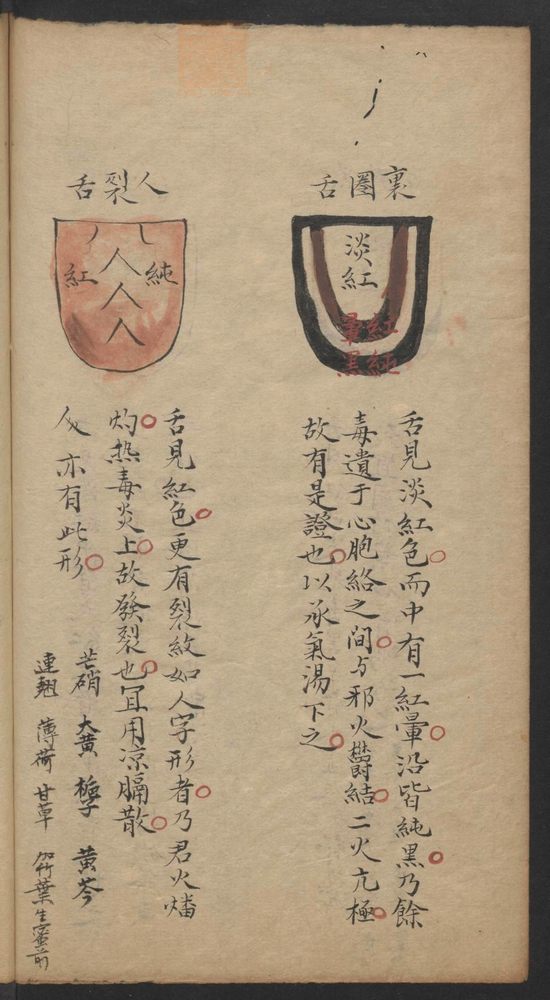 裏圈舌
淡紅
紅暈
純黑
舌見淡紅色而中有一紅暈沿皆純黑乃餘
毒遺于心胞絡之間与邪火鬱結二火亢極
故有是證也以承氣湯下之
人裂舌
純紅
人人人
舌見紅色更有裂紋如人字形者乃君火燔
灼热毒炎上故發裂也冝用凉膈散
亦有此形
芒硝 大黄 梔子 黄芩
連翹 薄荷 甘草 加竹葉生蜜前